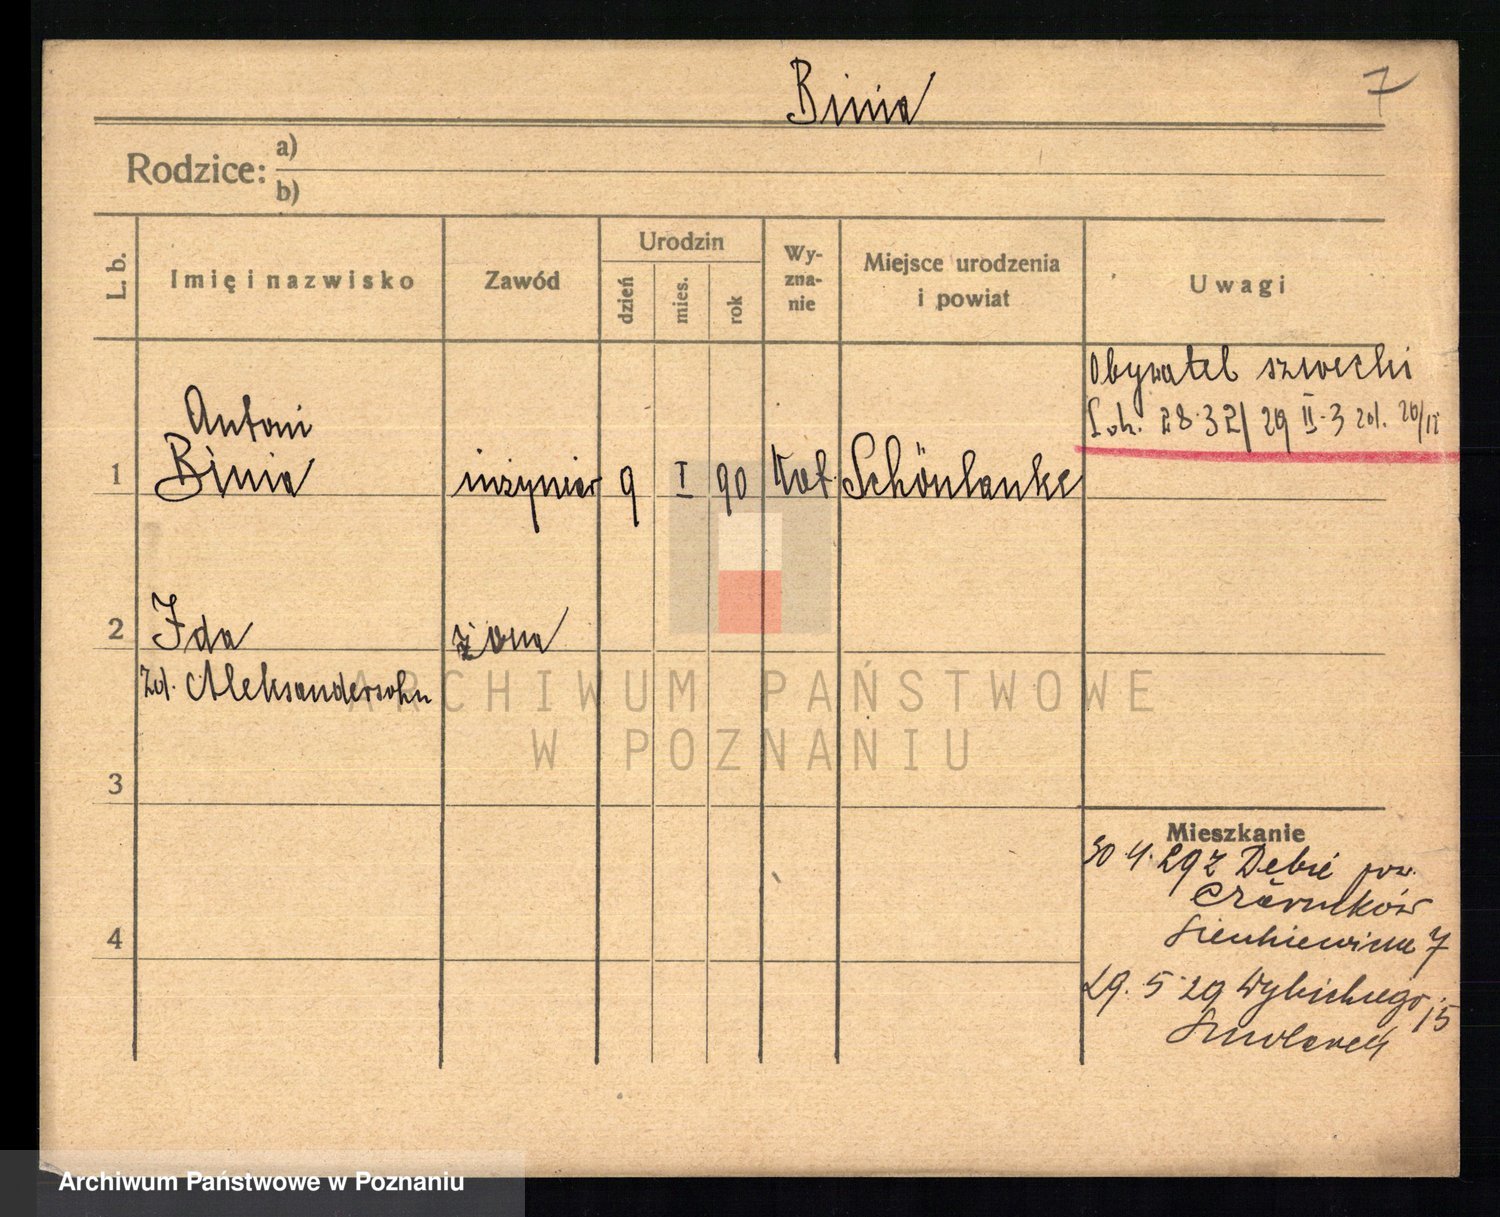 Binia
7
Rodzice:
a)
b)
L. b.
Imię i nazwisko
Zawód
Urodzin
dzień
mies.
rok
Wy-
zna-
nie
Miejsce urodzenia
i powiat
Uwagi
Obywatel szwecki
28.32/29 II-3
Antoni
1 Binia inżynier 9 I 90 kat Schönlanke
2 Ida żona
Aleksandersohn
3
4
Mieszkanie
30.4.29 z Dębie pow.
Czarnków
Sienkiewicza 7
29.5.29 Wybickiego 15
ARCHIWUM PAŃSTWOWE
W POZNANIU
Archiwum Państwowe w Poznaniu